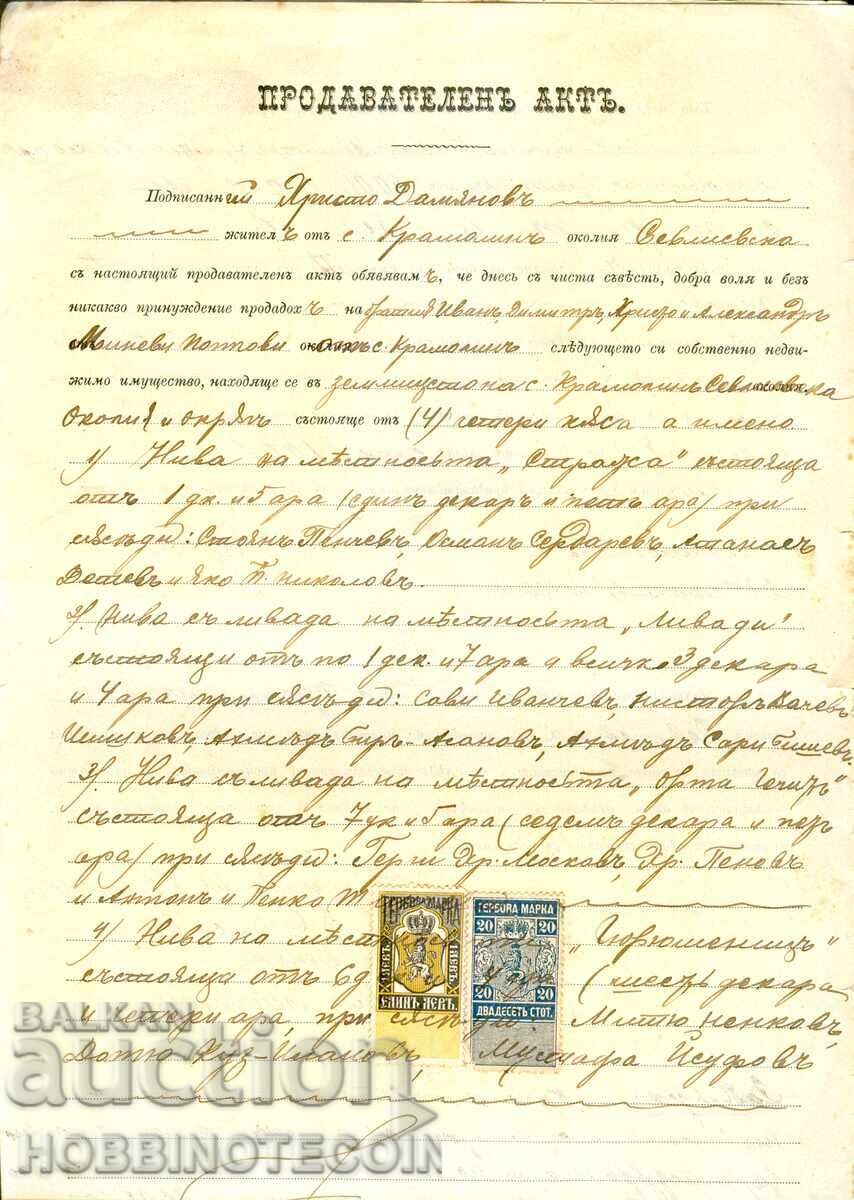 ПРОДАВАТЕЛЕНЪ АКТЪ.
Подписанний Христо Дамяновъ
жителъ отъ с. Крамолинъ околия Севлиевска
съ настоящий продавателенъ актъ обявявамъ, че днесъ съ чиста съвѣсть, добра воля и безъ
никакво принуждение продадохъ на братия Иванъ, Димитръ, Христо и Александръ
Миневи Поппови отъ с. Крамолинъ слѣдующето си собственно недви-
жимо имущество, находяще се въ землището на с. Крамолинъ Севлиевска
Околия и окрѫгъ състояще отъ (4) четери кѫса а имено
1) Нива на мѣстностьта „Стража" състояща
отъ 1 дк. и 5 ара (единъ декаръ и петь ара) при
сѫсѣди: Стоянъ Пенчевъ, Османъ Сердаревъ, Атанасъ
и Яко П. Николовъ.
2). Нива съ ливада на мѣстностьта „Ливади"
състоящи отъ по 1 дек. и 7 ара а всичко 3 декара
и 4 ара при сѫсѣди: Сови Иванчевъ, Нисторъ Качевъ
Ахмедъ Асановъ, Ахмедъ Сари
3). Нива съ ливада на мѣстностьта „Орта Гечитъ"
състояща отъ 7 дк и 5 ара (седемъ декара и петь
ара) при сѫсѣди: Герги Др. Московъ, Др. Пеновъ
и Антонъ и Пенко
4) Нива на „Гюрюшеницъ"
състояща отъ 6 д (шесть декара
и четери ара, при сѫсѣди: Митю Ненковъ,
Мустафа Исуфовъ
ГЕРБОВА МАРКА
1 ЛЕВЪ
1 ЛЕВЪ
ЕДИНЪ ЛЕВЪ.
ГЕРБОВА МАРКА
20 20
20 20
ДВАДЕСЕТЬ СТОТ.
BALKAN
auction
HOBBINOTECOIN